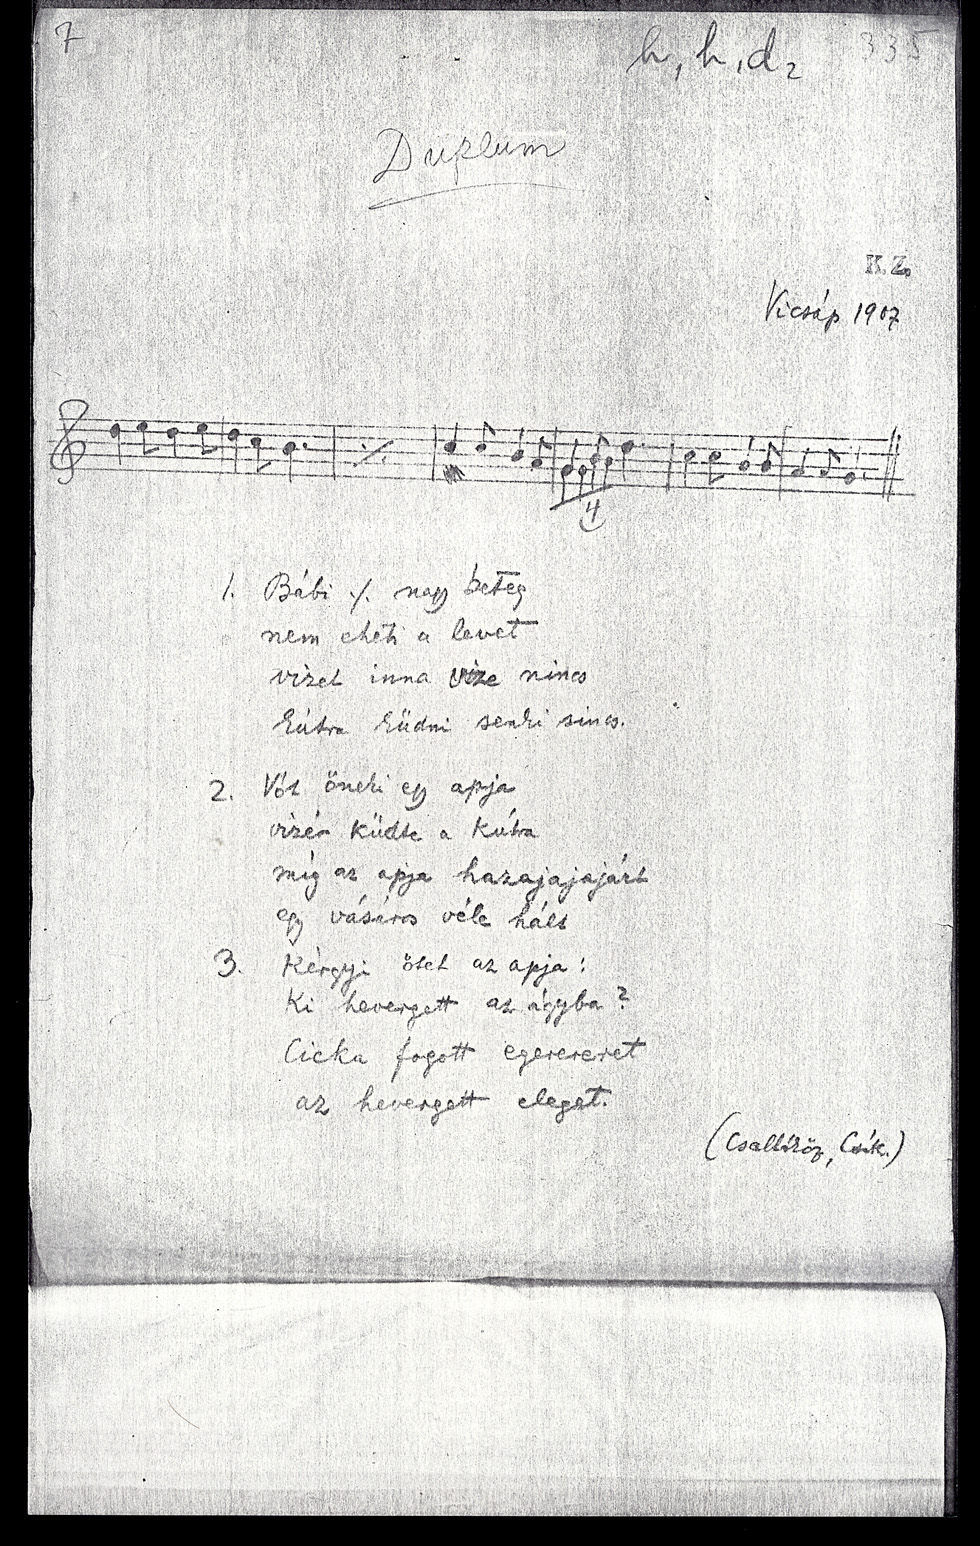 7
h, h, d2
335
Duplum
K. Z.
Vicsáp 1907
4
1. Bábi ·/. nagy beteg
nem eheti a levet
vizet inna vize nincs
kútra küdni senki sincs.
2. Vót öneki egy apja
vizér küdte a kútra
míg az apja hazajajajárt
egy vásáros véle hált
3. Kérgyi ötet az apja:
Ki hevergett az ágyba?
Cicka fogott egerereret
az hevergett eleget.
(Csallóköz, Csák.)